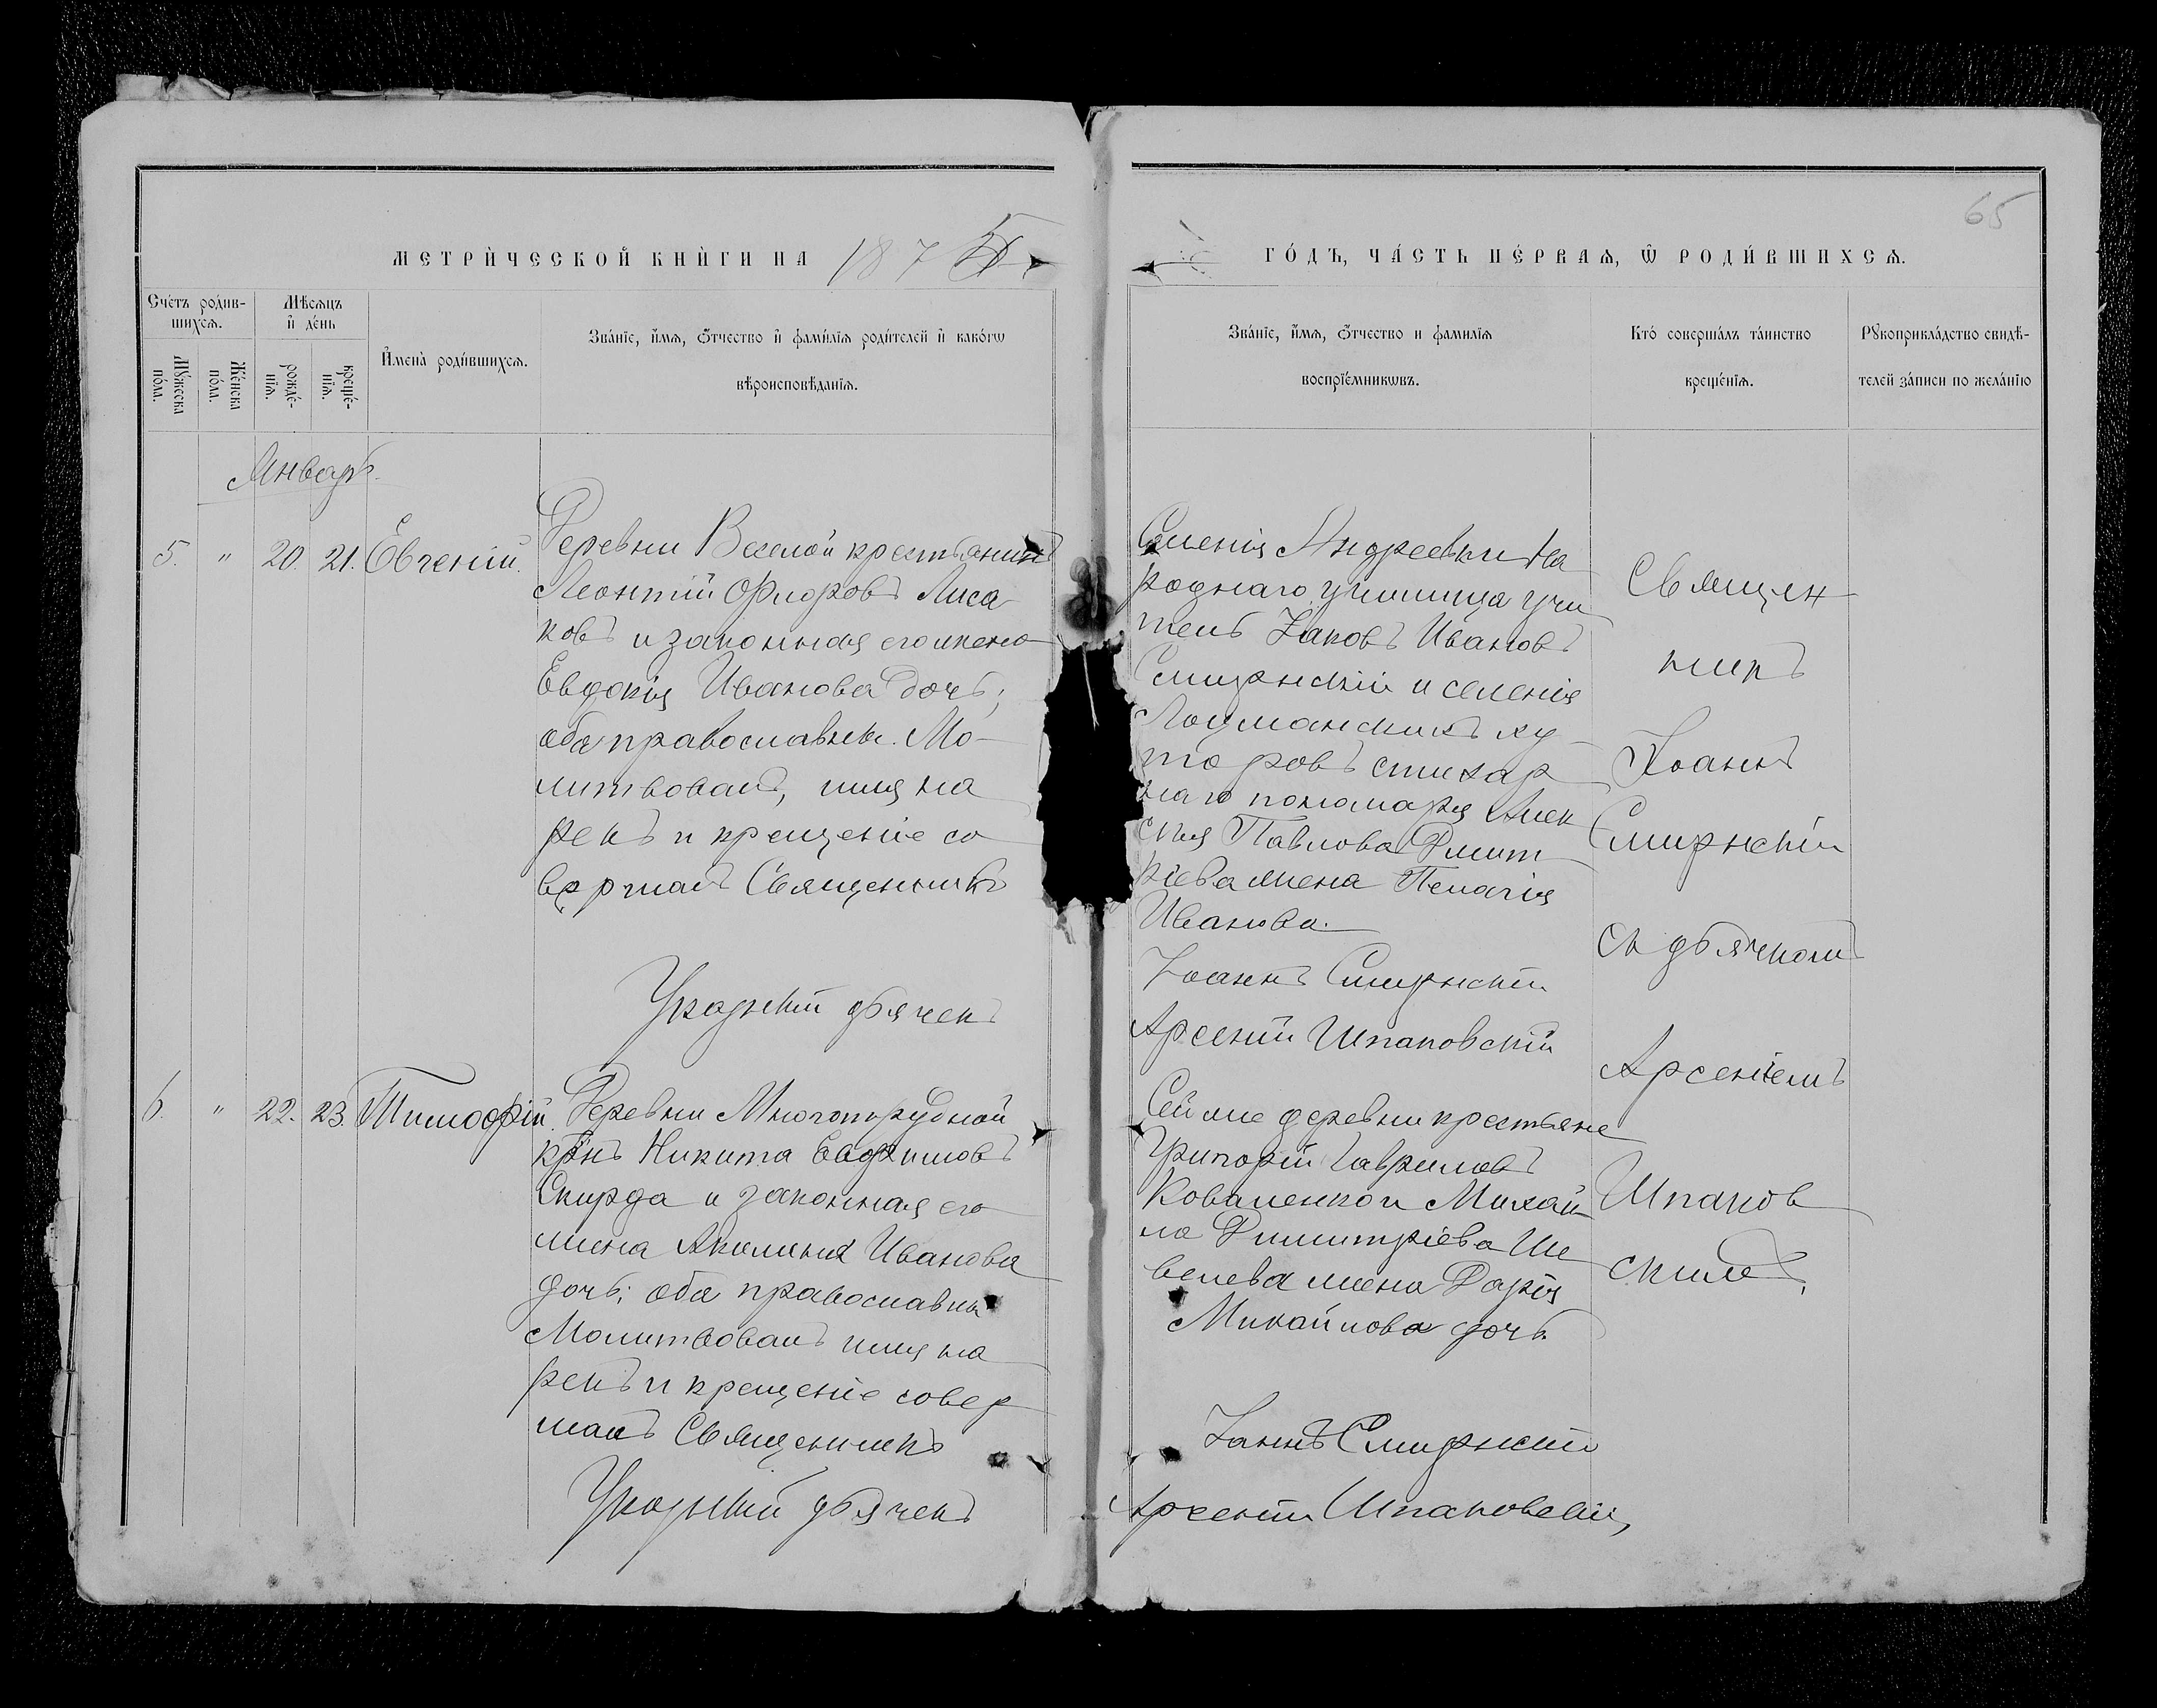 65
МЕТРИ́ЧЕСКОЙ КНИ́ГИ НА 1875
ГО́ДЪ, ЧА́СТЬ ПЕ́РВАѦ, Ѡ РОДИ́ВШИХСѦ.
Сче́тъ роди́в-
шихсѧ.
Мѣ́сѧцъ
и҆ де́нь
Мꙋ́жеска
по́ла.
Же́нска
по́ла.
рожде́-
нїѧ.
креще́-
нїѧ.
И҆мена̀ роди́вшихсѧ.
Зва́нїе, и҆́мѧ, ѻ҆́тчество и҆ фами́лїѧ роди́телей и҆ како́гѡ
вѣроисповѣ́данїѧ.
Зва́нїе, и҆́мѧ, ѻ҆́тчество и фамилїѧ
воспрїе́мникѡвъ.
Кто́ соверша́лъ та́инство
креще́нїѧ.
Рꙋкоприкла́дство свидѣ́-
телей за́писи по жела́нїю
Январь.
5. " 20. 21. Евгеній.
Деревни Веселой крестьянинъ
Леонтій Ѳедоровъ Лиса
ковъ и законная его жена
Евдокія Иванова дочь;
оба православны. Мо-
литвовалъ, имя на
рекъ и крещеніе со
вершалъ Священникъ
Селенія Андреевки На
роднаго училища учи
тель Іаковъ Ивановъ
Смирнскій и селенія
Лоцманскихъ ху-
торовъ стихар
наго пономаря Алек
сѣя Павлова Дмит
ріева жена Пелагія
Иванова.
Священ
никъ
Іоаннъ
Смирнскій
съ дьячкомъ
Арсеніемъ
Шпаков
скимъ,
Украдскій дьячекъ
Іоаннъ Смирнскій
Арсеній Шпаковскій
6. " 22. 23. Тимоѳій.
Деревни Многотрудной
крнъ Никита Евфимовъ
Скирда и законная его
жена Акилина Иванова
дочь; оба православны
Молитвовалъ имя на
рекъ и крещеніе совер
шалъ Священникъ
Сей же деревни крестьяне
Григорій Гавриловъ
Коваленко и Михай
ла Димитріева Ше
велева жена Дарія
Михайлова дочь.
Украдскій дьячекъ
Іаннъ Смирнскій
Арсеній Шпаковскій,